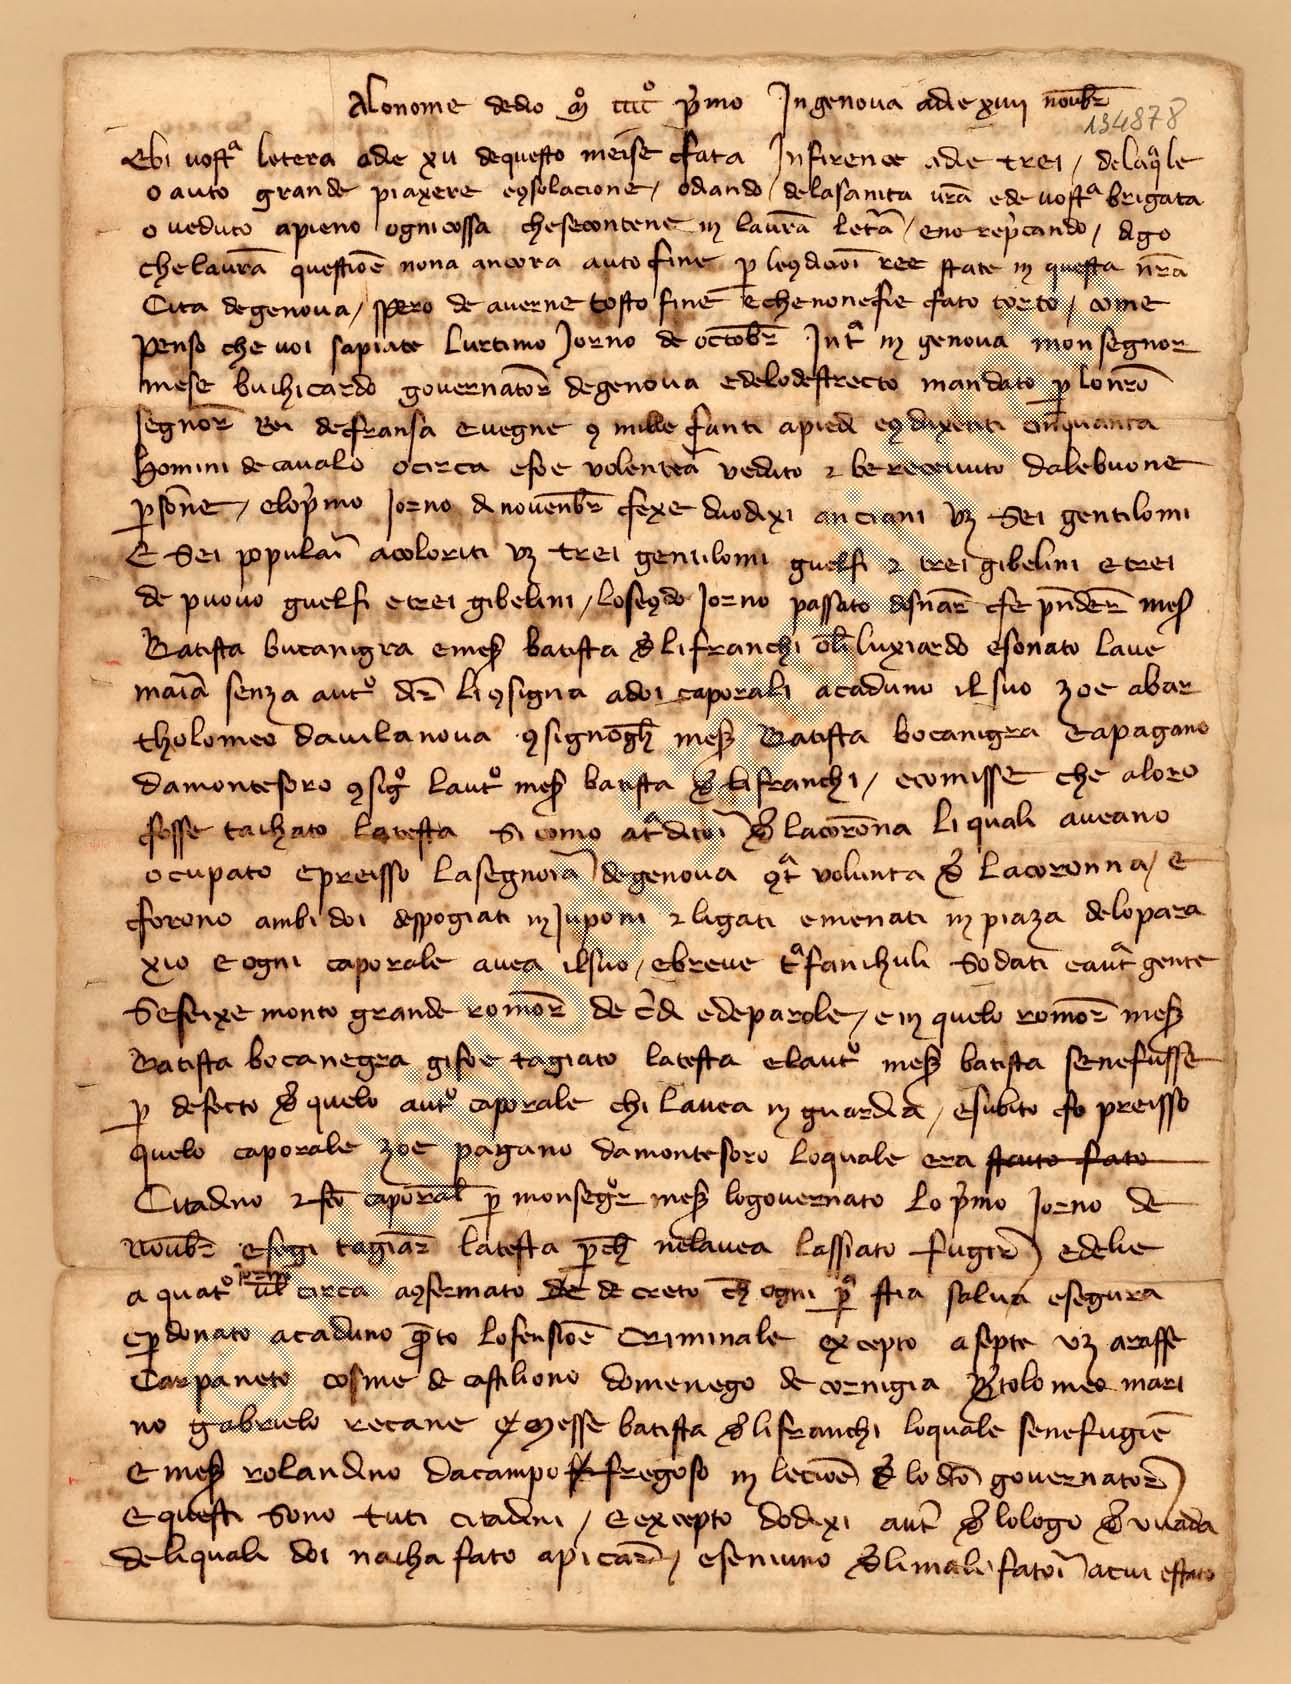 Alonome dedio mº ccccº pmo In genova adie xiiii novbr
134878
Ebi vostª letera adie xii dequesto meise fata In firence adie trei / delaqªle
o auto grande piaxere e9solacione / odiando / delasanita vrā ede vostª brigata
o veduto apieno ognicossa chesecontene in lavrā letā / eno reprcando / digo
chelavrā questiōe nona ancora auto fine p le9dicioī ree state in questa nrā
Cita degenova / spero de averne tosto fine e che nonesie fato torto / come
penso che voi sapiate lurtimo Jorno de octobr Intª in genova monsegnor
mese buihicardo governator degenova edelodestrecto mandato p lonrō
segnor Rei defransa evegne 9 mille fanti apiedi e9 dixenti cinquanta
homini de cavalo ocirca efoe volentea veduto z be recevuto dalebuone
psone / elopmo Jorno di novenbr fexe dodixi anciani vz Sei gentilomi
E Sei populai acoloriti vz trei gentilomi guelfi z trei gibelini etrei
de puovo guelfi etrei gibelini / lose9do Jorno passato disnar fe pnder mes
Batista bucanigra emes batista de li franchi olī luxiardo esonato lave
maīa senza autº dir li 9signa adoi caporali acaduno il suo zoe abar
tholomeo davilanova 9signogh mes Batista bocanigra Eapagano
damontesoro 9sigº lautº mes batista de li franchi / ecomisse che aloro
fosse taihato latesta Si como atªditoi de lacorōna li quali aveano
ocupato epreisso lasegnoria degenova 9tª volunta de lacoronna / E
forono ambi doi despogiati in Juponi z ligati emenati in piaza delopara
xio E ogni caporale avea ilsuo / ebreve tªfanihuli Sodati eautª gente
Sefeixe monto grande romor de cdi edeparole / e in quelo romor mes
Batista bocanegra gifoe tagiato latesta elautº mes batista senefusse
p defecto de quelo autº caporale chi lavea in guardia / esubito fo preisso
quelo caporale zoe pagano damontesoro loquale era stato fato
Citadino z fcō caporal p monsegºr mes logovernato lo pmo Jorno de
Novbr efegi tagiar latesta pch nelavea lassiato fugir edelie
a quatº iorni circa a9fermato de de creto ch ogni pª stia salva esegura
epdonato acaduno qto lofensiōe criminale excepto asepte vz araffe
Carpaneto cosme de castiliono domenego de cornigia Btolomeo mari
no gabrielo recane messe batista de li franchi loquale senefugie
E mes rolandino dacampo fregoso in leciōe de lo dcō governator
Equesti Sono tuti citadini / E excepto dodixi autr de lologo de vuada
deliquali doi naiha fato apicar / eseniuno de li mali fatoi acui estato